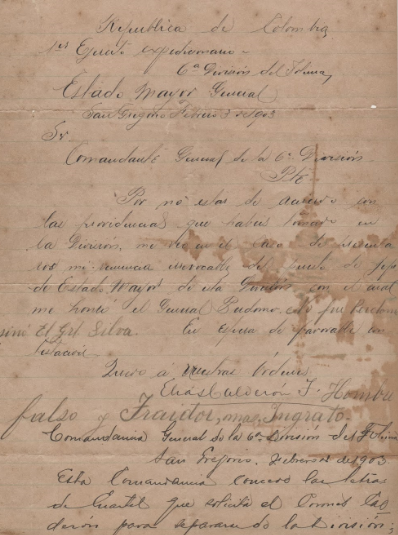 Republica de Colombia
1er Ejercito Expedicionario –
6a Division del Tolima,
Estado Mayor General
San Gregorio Febrero 3 de 1903
Sr
Comandante General de la 6a Division.
Pte
Por no estar de acuerdo con
las providencias que habeis tomado en
la Division, me veo en el caso de presenta
ros mi renuncia irrevocable del puesto de jefe
de Estado Mayor de esta Division con el cual
me honró el General Perdomo
El Gral Silva. En espera de favorable con
testacion.
Quedo a vuestras órdenes
Elias Calderón F. Hombre
falso y Traidor, mas Ingrato
Comandancia General de la 6a Division del Tolima
San Gregorio, Febrero de 1903
Esta Comandancia concede las letras
de Cuartel que solicita el Coronel Cal
derón para separarse de la Division;